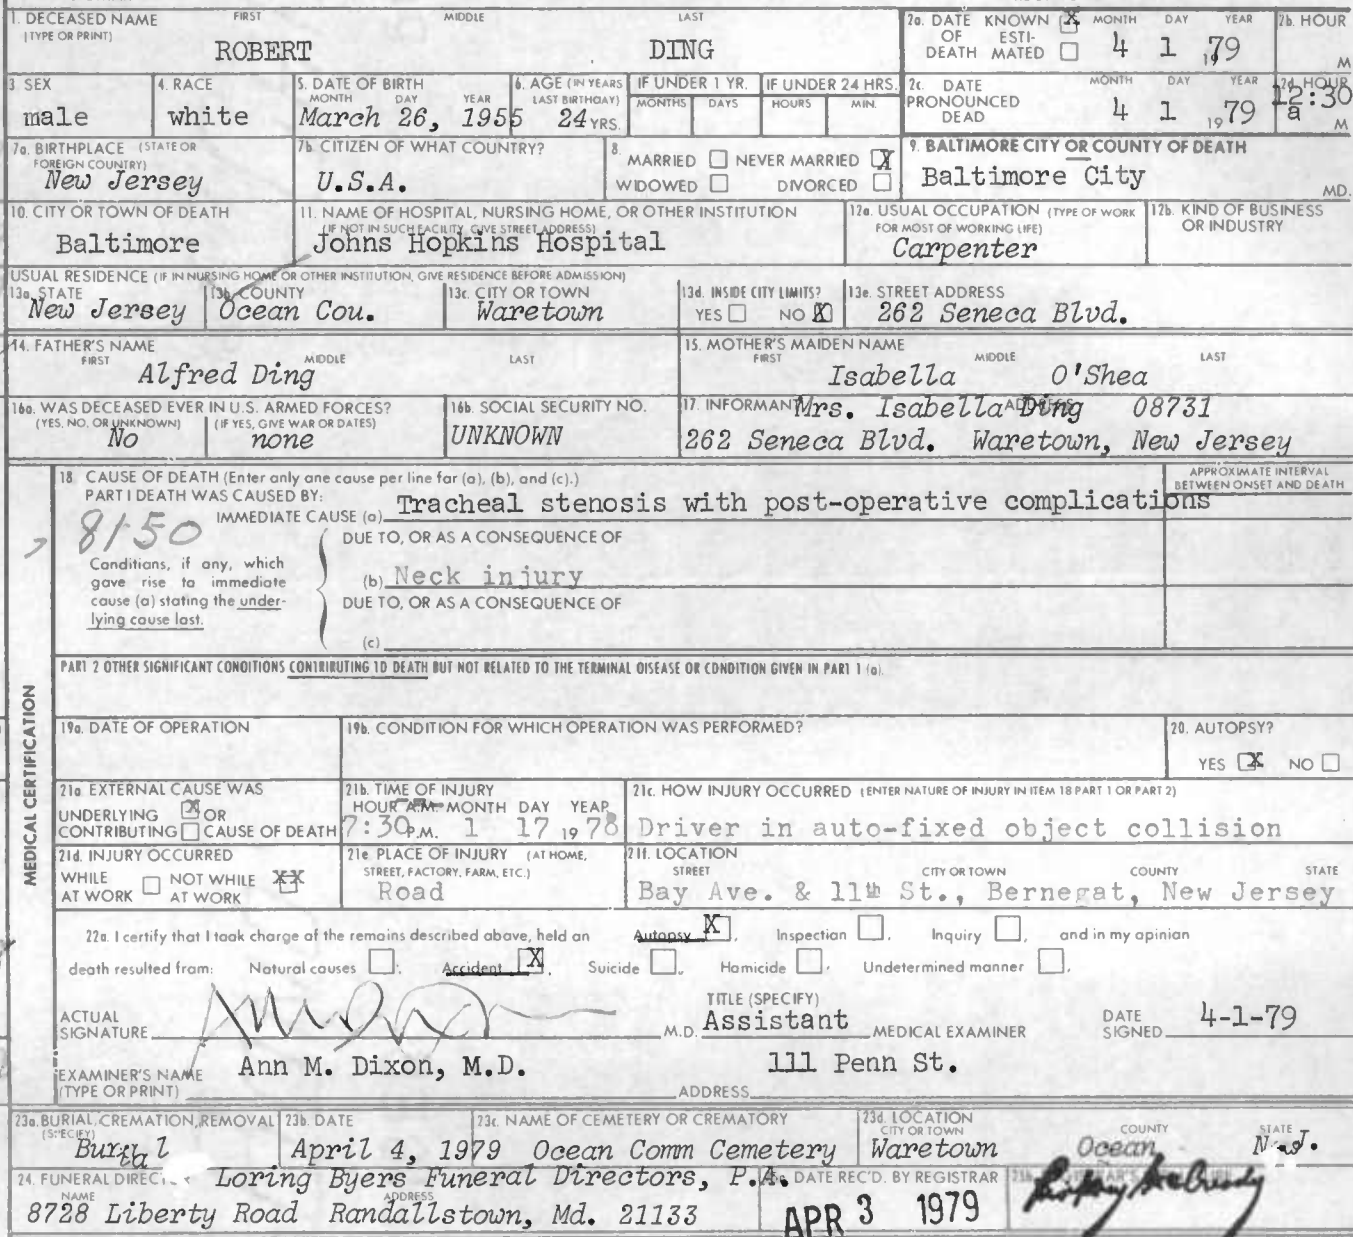 1. DECEASED NAME FIRST MIDDLE LAST
(TYPE OR PRINT)
ROBERT DING
2a. DATE KNOWN X MONTH DAY YEAR
OF ESTI-
DEATH MATED 4 1 1979
2b. HOUR
M
3 SEX
male
4. RACE
white
5. DATE OF BIRTH
MONTH DAY YEAR
March 26, 1955
6. AGE (IN YEARS
LAST BIRTHDAY)
24 YRS.
IF UNDER 1 YR.
MONTHS DAYS
IF UNDER 24 HRS.
HOURS MIN.
2c. DATE MONTH DAY YEAR
PRONOUNCED
DEAD 4 1 1979
2d. HOUR
12:30
a M
7a. BIRTHPLACE (STATE OR
FOREIGN COUNTRY)
New Jersey
7b. CITIZEN OF WHAT COUNTRY?
U.S.A.
8. MARRIED NEVER MARRIED X
WIDOWED DIVORCED
9. BALTIMORE CITY OR COUNTY OF DEATH
Baltimore City MD.
10. CITY OR TOWN OF DEATH
Baltimore
11. NAME OF HOSPITAL, NURSING HOME, OR OTHER INSTITUTION
(IF NOT IN SUCH FACILITY, GIVE STREET ADDRESS)
Johns Hopkins Hospital
12a. USUAL OCCUPATION (TYPE OF WORK
FOR MOST OF WORKING LIFE)
Carpenter
12b. KIND OF BUSINESS
OR INDUSTRY
USUAL RESIDENCE (IF IN NURSING HOME OR OTHER INSTITUTION, GIVE RESIDENCE BEFORE ADMISSION)
13a. STATE
New Jersey
13b. COUNTY
Ocean Cou.
13c. CITY OR TOWN
Waretown
13d. INSIDE CITY LIMITS?
YES NO X
13e. STREET ADDRESS
262 Seneca Blvd.
14. FATHER'S NAME
FIRST MIDDLE LAST
Alfred Ding
15. MOTHER'S MAIDEN NAME
FIRST MIDDLE LAST
Isabella O'Shea
16a. WAS DECEASED EVER IN U.S. ARMED FORCES?
(YES, NO, OR UNKNOWN) (IF YES, GIVE WAR OR DATES)
No none
16b. SOCIAL SECURITY NO.
UNKNOWN
17. INFORMANT ADDRESS
Mrs. Isabella Ding 08731
262 Seneca Blvd. Waretown, New Jersey
18 CAUSE OF DEATH (Enter only one cause per line for (a), (b), and (c).)
PART I DEATH WAS CAUSED BY:
APPROXIMATE INTERVAL
BETWEEN ONSET AND DEATH
8150
IMMEDIATE CAUSE (a) Tracheal stenosis with post-operative complications
DUE TO, OR AS A CONSEQUENCE OF
Conditions, if any, which
gave rise to immediate
cause (a) stating the under-
lying cause last.
(b) Neck injury
DUE TO, OR AS A CONSEQUENCE OF
(c)
PART 2 OTHER SIGNIFICANT CONDITIONS CONTRIBUTING TO DEATH BUT NOT RELATED TO THE TERMINAL DISEASE OR CONDITION GIVEN IN PART 1 (a).
MEDICAL CERTIFICATION
19a. DATE OF OPERATION
19b. CONDITION FOR WHICH OPERATION WAS PERFORMED?
20. AUTOPSY?
YES X NO
21a EXTERNAL CAUSE WAS
UNDERLYING X OR
CONTRIBUTING CAUSE OF DEATH
21b. TIME OF INJURY
HOUR A.M. MONTH DAY YEAR
7:30 P.M. 1 17 1978
21c. HOW INJURY OCCURRED (ENTER NATURE OF INJURY IN ITEM 18 PART 1 OR PART 2)
Driver in auto-fixed object collision
21d. INJURY OCCURRED
WHILE NOT WHILE XX
AT WORK AT WORK
21e PLACE OF INJURY (AT HOME,
STREET, FACTORY, FARM, ETC.)
Road
21f. LOCATION
STREET CITY OR TOWN COUNTY STATE
Bay Ave. & 11th St., Bernegat, New Jersey
22a. I certify that I took charge of the remains described above, held an Autopsy X, Inspection, Inquiry, and in my opinion
death resulted from: Natural causes, Accident X, Suicide, Homicide, Undetermined manner.
ACTUAL
SIGNATURE M.D.
TITLE (SPECIFY)
Assistant MEDICAL EXAMINER
DATE
SIGNED 4-1-79
EXAMINER'S NAME
(TYPE OR PRINT)
Ann M. Dixon, M.D.
ADDRESS 111 Penn St.
23a. BURIAL, CREMATION, REMOVAL
(SPECIFY)
Burial
23b. DATE
April 4, 1979
23c. NAME OF CEMETERY OR CREMATORY
Ocean Comm Cemetery
23d. LOCATION
CITY OR TOWN COUNTY STATE
Waretown Ocean N.J.
24. FUNERAL DIREC
Loring Byers Funeral Directors, P.A.
NAME ADDRESS
8728 Liberty Road Randallstown, Md. 21133
DATE REC'D. BY REGISTRAR
APR 3 1979